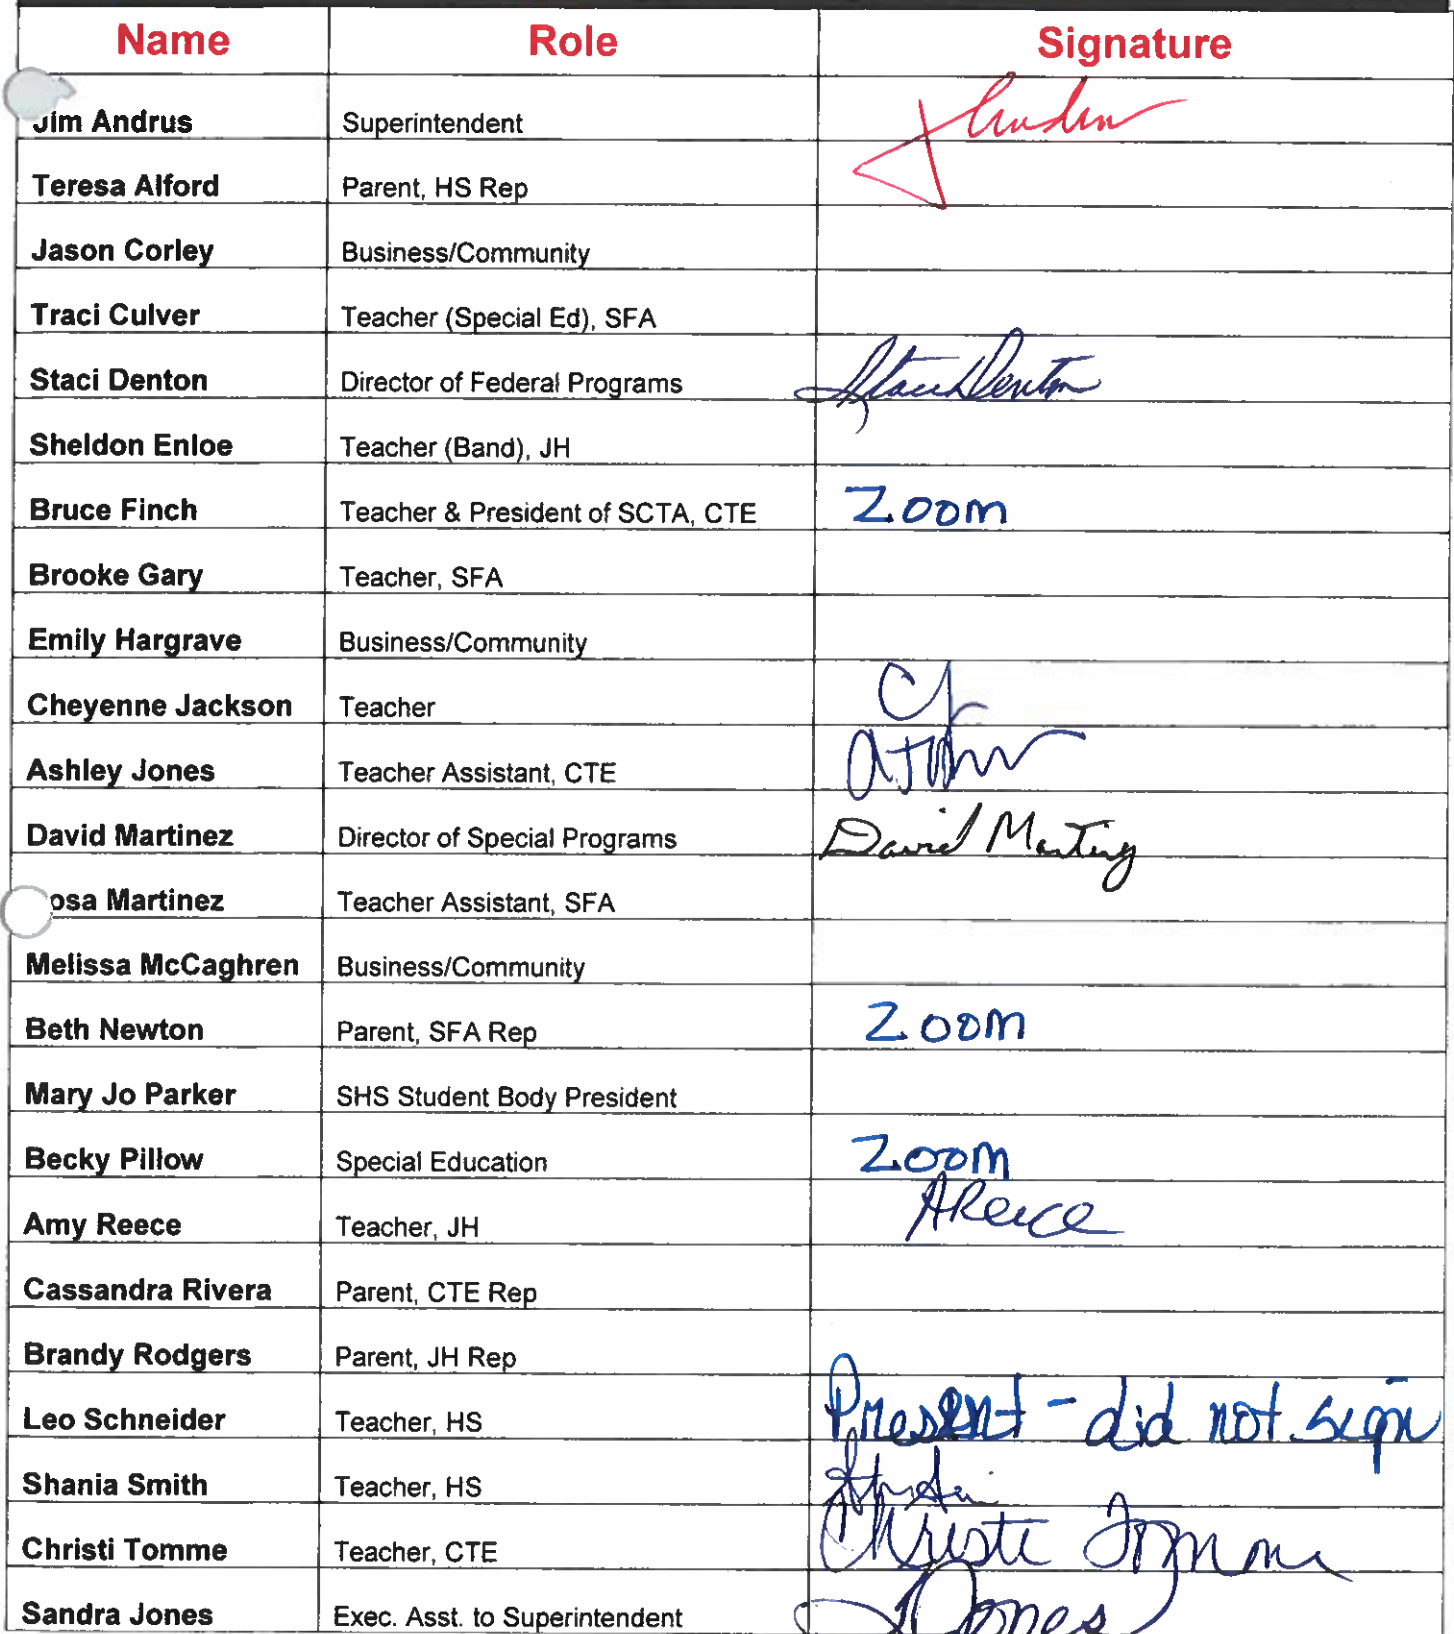 Name Role Signature
Jim Andrus Superintendent
Teresa Alford Parent, HS Rep
Jason Corley Business/Community
Traci Culver Teacher (Special Ed), SFA
Staci Denton Director of Federal Programs Staci Denton
Sheldon Enloe Teacher (Band), JH
Bruce Finch Teacher & President of SCTA, CTE Zoom
Brooke Gary Teacher, SFA
Emily Hargrave Business/Community
Cheyenne Jackson Teacher CJ
Ashley Jones Teacher Assistant, CTE
David Martinez Director of Special Programs David Martinez
osa Martinez Teacher Assistant, SFA
Melissa McCaghren Business/Community
Beth Newton Parent, SFA Rep Zoom
Mary Jo Parker SHS Student Body President
Becky Pillow Special Education Zoom
Amy Reece Teacher, JH AReece
Cassandra Rivera Parent, CTE Rep
Brandy Rodgers Parent, JH Rep
Leo Schneider Teacher, HS Present - did not sign
Shania Smith Teacher, HS
Christi Tomme Teacher, CTE Christi Tomme
Sandra Jones Exec. Asst. to Superintendent SJones